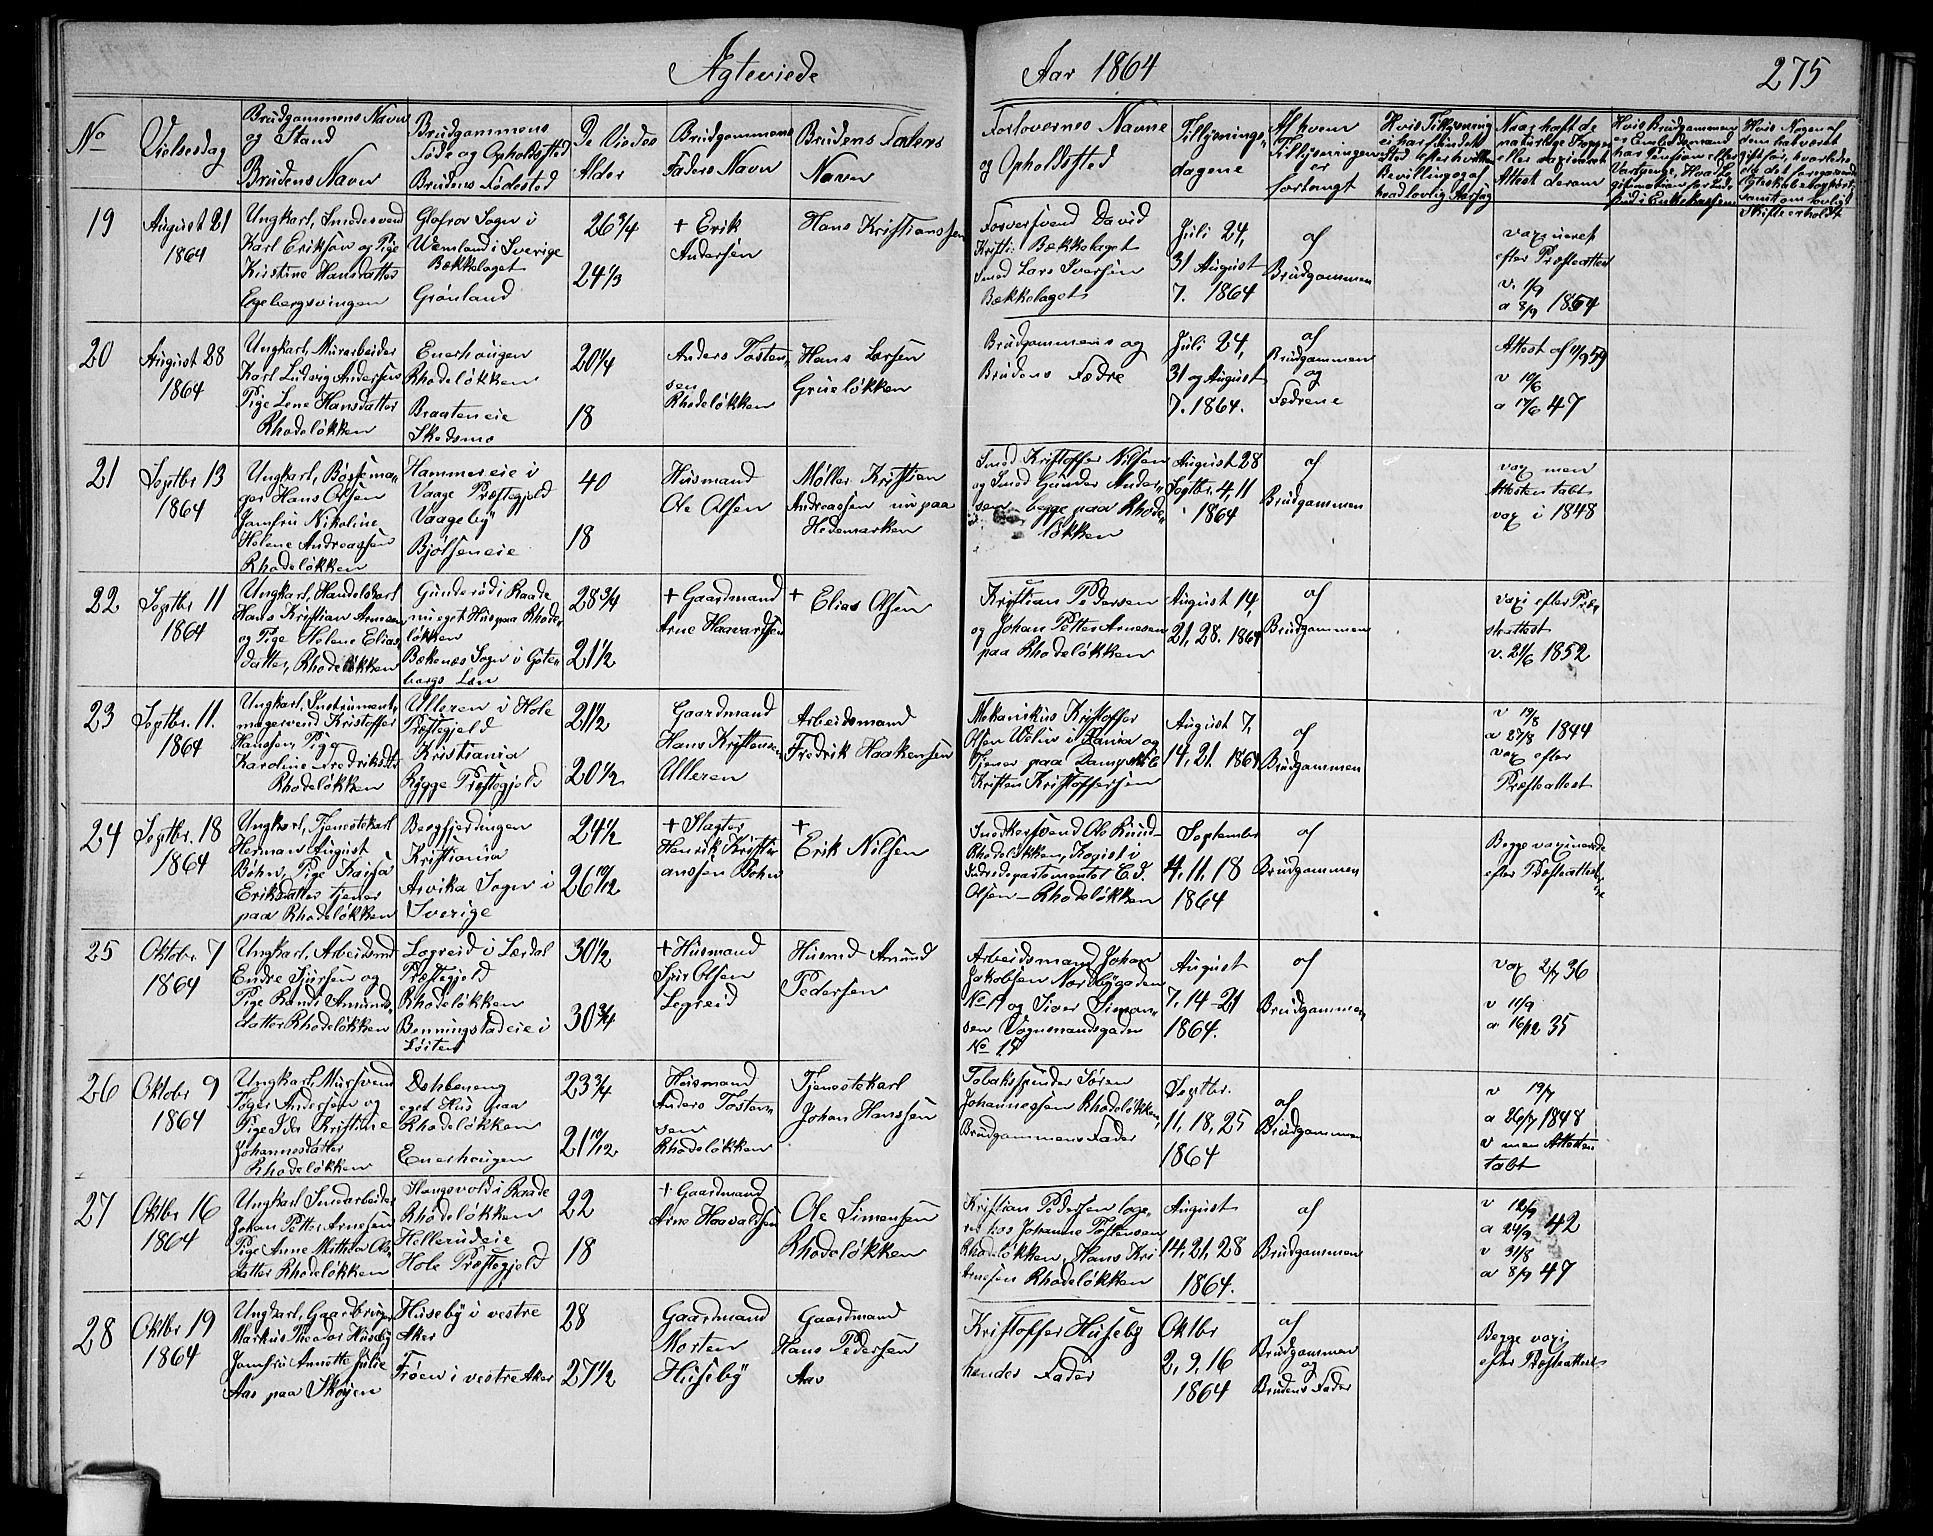 Ægteviede
Aar 1864
275
No
Vielsesdag
Brudgommens Navn
og Stand
Brudens Navn
Brudgommens
Føde og Opholdssted
Brudens Fødested
De Viedes
Alder
Brudgommens
Faders Navn
Brudens Faders
Navn
Forlovernes Navne
og Opholdsted
Tillysnings-
dagene
Af hvem
Tillysningen
er
forlangt
19
August 21
1864
Ungkarl, Smedesvend
Karl Eriksøn og Pige
Kirstine Hansdatter
Egebergsvingen
Glafva Sogn i
Wemland i Sverige
Bækkelaget
Grønland
26 3/4
24 1/3
+ Erik
Andersen
Hans Kristianssen
Farversvend David
Bækkelaget
Smed Lars Iversen
Bækkelaget
Juli 24,
31 August
7. 1864
af
Brudgommen
vaxineret
efter Præsteattest
v. 1/9
a 8/9 1854
20
August 28
1864
Ungkarl, Murarbeider
Karl Ludvig Andersen
Pige Lene Hansdatter
Rhodeløkken
Enerhougen
Rhodeløkken
Braateneie
Skedsmo
20 1/4
18
Anders Tosten-
sen
Rhodeløkken
Hans Larsen
Grueløkken
Brudgommens og
Brudens Fædre
Juli 24,
31 og August
7. 1864.
af
Brudgommen
og
Fædrene
Attest af 11/9 59
v 10/6
a 17/6 47
21
Septbr 13
1864
Ungkarl, Bøssema-
ger Hans Olsen
Jomfru Nikoline
Helene Andreassen
Rhodeløkken
Hammereie i
Vaage Præstegjeld
Vaageby
Bjølseneie
40
18
Husmand
Ole Olsen
Møller Kristian
Andreassen nu paa
Hedemarken
Smed Kristoffer Nilsen
og Smed Gunder Ander-
sen begge paa Rhode-
løkken
August 28
Septbr. 4, 11
1864
af
Brudgommen
vax men
Attesten tabt
vax i 1848
22
Septbr 11
1864
Ungkarl, Handelskarl
Hans Kristian Arnesen
og Pige Helene Elias-
datter, Rhodeløkken
Gunderød i Raade
nu eget Hus paa Rhode-
løkken
Bøkenæs Sogn i Gøte-
borgs Læn
28 3/4
21 1/2
+ Gaardmand
Arne Haavardsen
+ Elias Olsen
Kristian Pedersen
og Johan Petter Arnesen
paa Rhodeløkken
August 14,
21, 28. 1864
af
Brudgommen
vaxi efter Præ-
steattest
v. 21/6 1852
23
Septbr. 11.
1864
Ungkarl, Instrument-
magersvend Kristoffer
Hanssen, Pige
Karoline Fredriksdtr
Rhodeløkken
Ulleren i Hole
Præstegjeld
Kristiania
Rygge Præstegjeld
21 1/2
20 1/2
Gaardmand
Hans Kristensen
Ulleren
Arbeidsmand
Fredrik Haakensen
Mekanikus Kristoffer
Olsen
Tjener paa
Kristen Kristoffersen
August 7,
14, 21. 1864
af
Brudgommen
v 19/8
a 27/8 1844
vax efter
Præsteattest
24
Septbr. 18
1864
Ungkarl, Tjenestekarl
Herman August
Bøhn, Pige Kaisa
Eriksdatter tjener
paa Rhodeløkken
Bergfjerdingen
Kristiania
Arvika Sogn i
Sverige
24 1/2
26 10/12
+ Slagter
Henrik Kristi-
anssen Bøhn
+
Erik Nilsen
Snedkersvend Ole Knud-
Rhodeløkken, Kopist i
Indredepartementet C. F.
Olsen – Rhodeløkken
September
4. 11. 18
1864
af
Brudgommen
Begge vaxinerede
efter Præsteattest
25
Oktobr 7
1864
Ungkarl, Arbeidsmd
Endre Sjursen og
Pige Randi Amund-
datter Rhodeløkken
Legreid i Lærdal
Præstegjeld
Rhodeløkken
Benningstadeie i
Løiten
30 1/2
30 3/4
+ Husmand
Sjur Olsen
Legreid
Husmd Amund
Pedersen
Arbeidsmand Johan
Jakobsen Nordbygaden
No 17 og Siver Simon-
sen Vognmandsgaden
No 15
August
7, 14 – 21
1864.
af
Brudgommen
vax 2/7 36
v 11/9
a 16/12 35
26
Oktobr 9
1864
Ungkarl, Mursvend
Roger Andersen og
Pige Ida Kristine
Johannesdatter
Rhodeløkken
eget Hus paa
Rhodeløkken
Enerhougen
23 3/4
21 10/12
Husmand
Anders Tosten-
sen
Rhodeløkken
Tjenestekarl
Johan Hanssen
Tobakspinder Søren
Johannessen Rhodeløkken,
Brudgommens Fader
Septbr.
11, 18, 25
1864
af
Brudgommen
v 19/7
a 26/7 1848
v men Attesten
tabt
27
Oktbr 16
1864
Ungkarl Smedarbeider
Johan Petter Arnesen
Pige Anne Mathea Ols-
datter Rhodeløkken
Haugsvold i Raade
Rhodeløkken
Hellerudeie
Hole Præstegjeld
22
18
+ Gaardmand
Arne Haavaldsen
Ole Simensen
Rhodeløkken
Kristian Pedersen loge-
re hos Johanne Tostensen
Rhodeløkken, Hans Kri
Arnesen Rhodeløkken
August
14, 21, 28
1864.
af
Brudgommen
v 12/9
a 24/9 42
v 31/8
a 8/9 47
28
Oktbr 19
1864
Ungkarl, Gaardbruger
Markus Theodor Huseby
Jomfru Annette Julie
Aas paa Skøyen
Huseby i vestre
Aker
Frøen i vestre Aker
28
27 1/2
Gaardmand
Morten
Huseby
Gaardmand
Hans Pedersen
Aas
Kristoffer Huseby
hendes Fader
Oktbr
2, 9, 16
1864
af
Brudgommen
og
Brudens Fader
Begge vaxi
efter Præsteattest